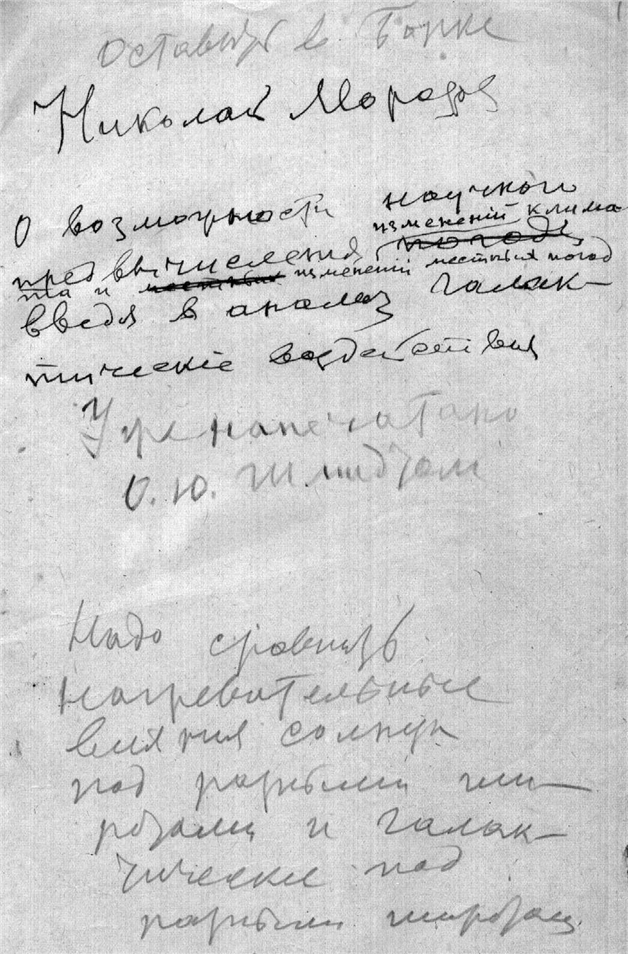 1
оставить в Борке
Николай Морозов
О возможности научного
измененій клима-
предвычисления погоды
та и местных измененій местных погод
вводя в анализ галак-
тическіе воздействия
Уже напечатано
О. Ю. Шмидтом
Надо сравнить
нагревательные
влияния солнца
под разными ши-
ротами и галак-
тические под
разными широтами